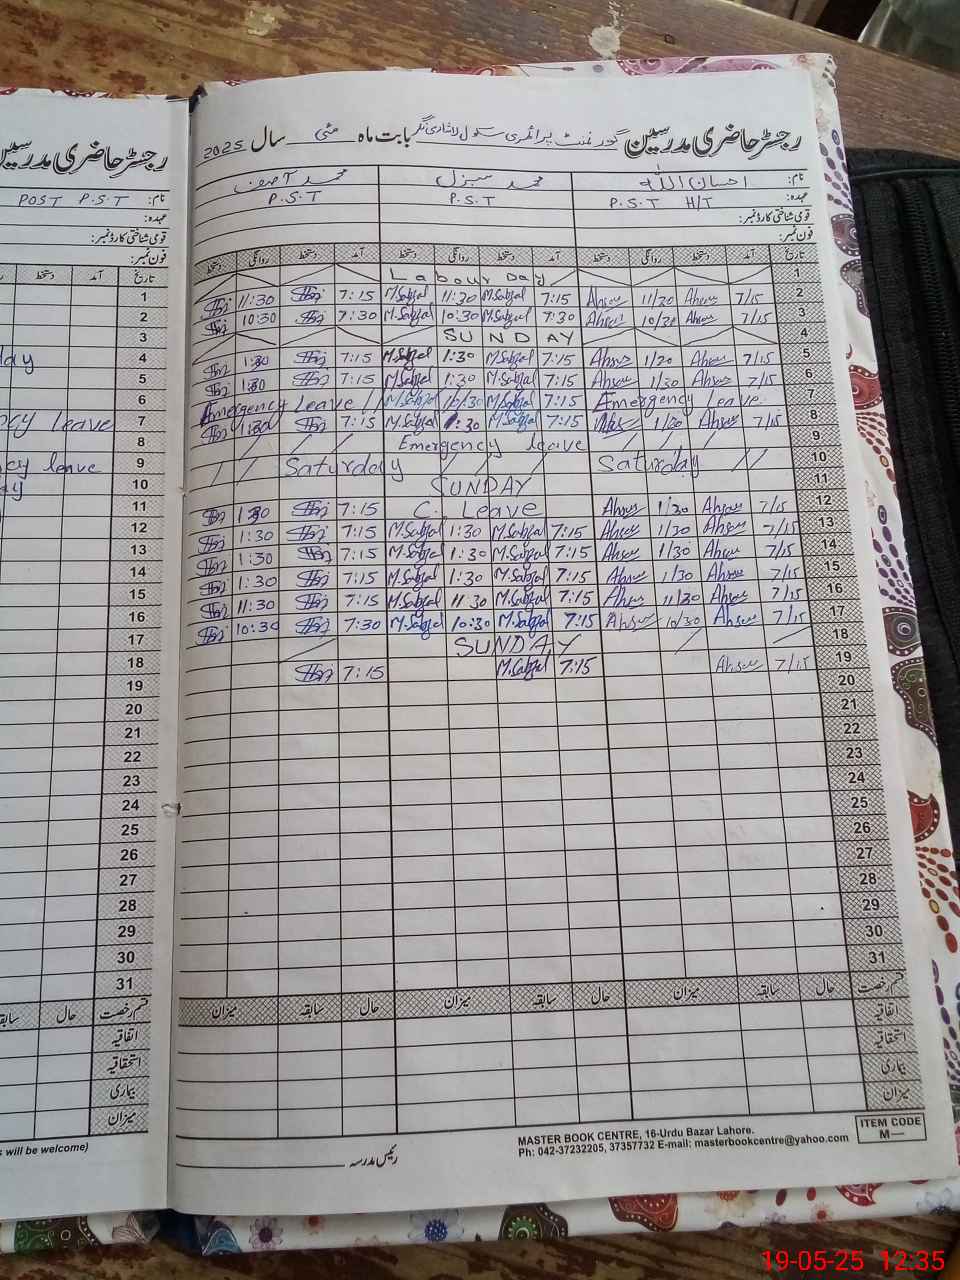 رجسٹر حاضری مدرسین گورنمنٹ پرائمری سکول لاشاری نگر بابت ماہ مئی سال 2025
نام: احسان اللہ محمد سبزل محمد آصف
عہدہ: P.S.T H/T P.S.T P.S.T
قومی شناختی کارڈ نمبر:
فون نمبر:
تاریخ آمد دستخط روانگی دستخط آمد دستخط روانگی دستخط آمد دستخط روانگی دستخط
1 Labour Day
2 7/15 Ahsan 11/30 Ahsan 7:15 M.Sabzal 11:30 M.Sabzal 7:15 11:30
3 7/15 Ahsan 10/30 Ahsan 7:30 M.Sabzal 10:30 M.Sabzal 7:30 10:30
4 SUNDAY
5 7/15 Ahsan 1/30 Ahsan 7:15 M.Sabzal 1:30 M.Sabzal 7:15 1:30
6 7/15 Ahsan 1/30 Ahsan 7:15 M.Sabzal 1:30 M.Sabzal 7:15 1:30
7 Emergency Leave. 7:15 M.Sabzal M.Sabzal Emergency Leave
8 7/15 Ahsan 1/30 7:15 M.Sabzal 1:30 M.Sabzal 7:15 1:30
9 Emergency leave
10 Saturday Saturday
11 SUNDAY
12 7/15 Ahsan 1/30 Ahsan C. Leave 7:15 1:30
13 7/15 Ahsan 1/30 Ahsan 7:15 M.Sabzal 1:30 M.Sabzal 7:15 1:30
14 7/15 Ahsan 1/30 Ahsan 7:15 M.Sabzal 1:30 M.Sabzal 7:15 1:30
15 7/15 Ahsan 1/30 Ahsan 7:15 M.Sabzal 1:30 M.Sabzal 7:15 1:30
16 7/15 Ahsan 11/30 Ahsan 7:15 M.Sabzal 11:30 M.Sabzal 7:15 11:30
17 7/15 Ahsan 10/30 Ahsan 7:15 M.Sabzal 10:30 M.Sabzal 7:30 10:30
18 SUNDAY
19 7/15 Ahsan 7:15 M.Sabzal 7:15
20
21
22
23
24
25
26
27
28
29
30
31
قسم رخصت حال سابقہ میزان حال سابقہ میزان حال سابقہ میزان
اتفاقیہ
استحقاقیہ
بیماری
میزان
رئیس مدرسہ
MASTER BOOK CENTRE, 16-Urdu Bazar Lahore.
Ph: 042-37232205, 37357732 E-mail: masterbookcentre@yahoo.com
ITEM CODE
M—
رجسٹر حاضری مدرسین
نام: POST P.S.T
عہدہ:
قومی شناختی کارڈ نمبر:
فون نمبر:
تاریخ آمد دستخط
1
2
3
4
5
6
7 leave
8
9 leave
10
11
12
13
14
15
16
17
18
19
20
21
22
23
24
25
26
27
28
29
30
31
قسم رخصت حال سابقہ
اتفاقیہ
استحقاقیہ
بیماری
میزان
will be welcome)
19-05-25 12:35